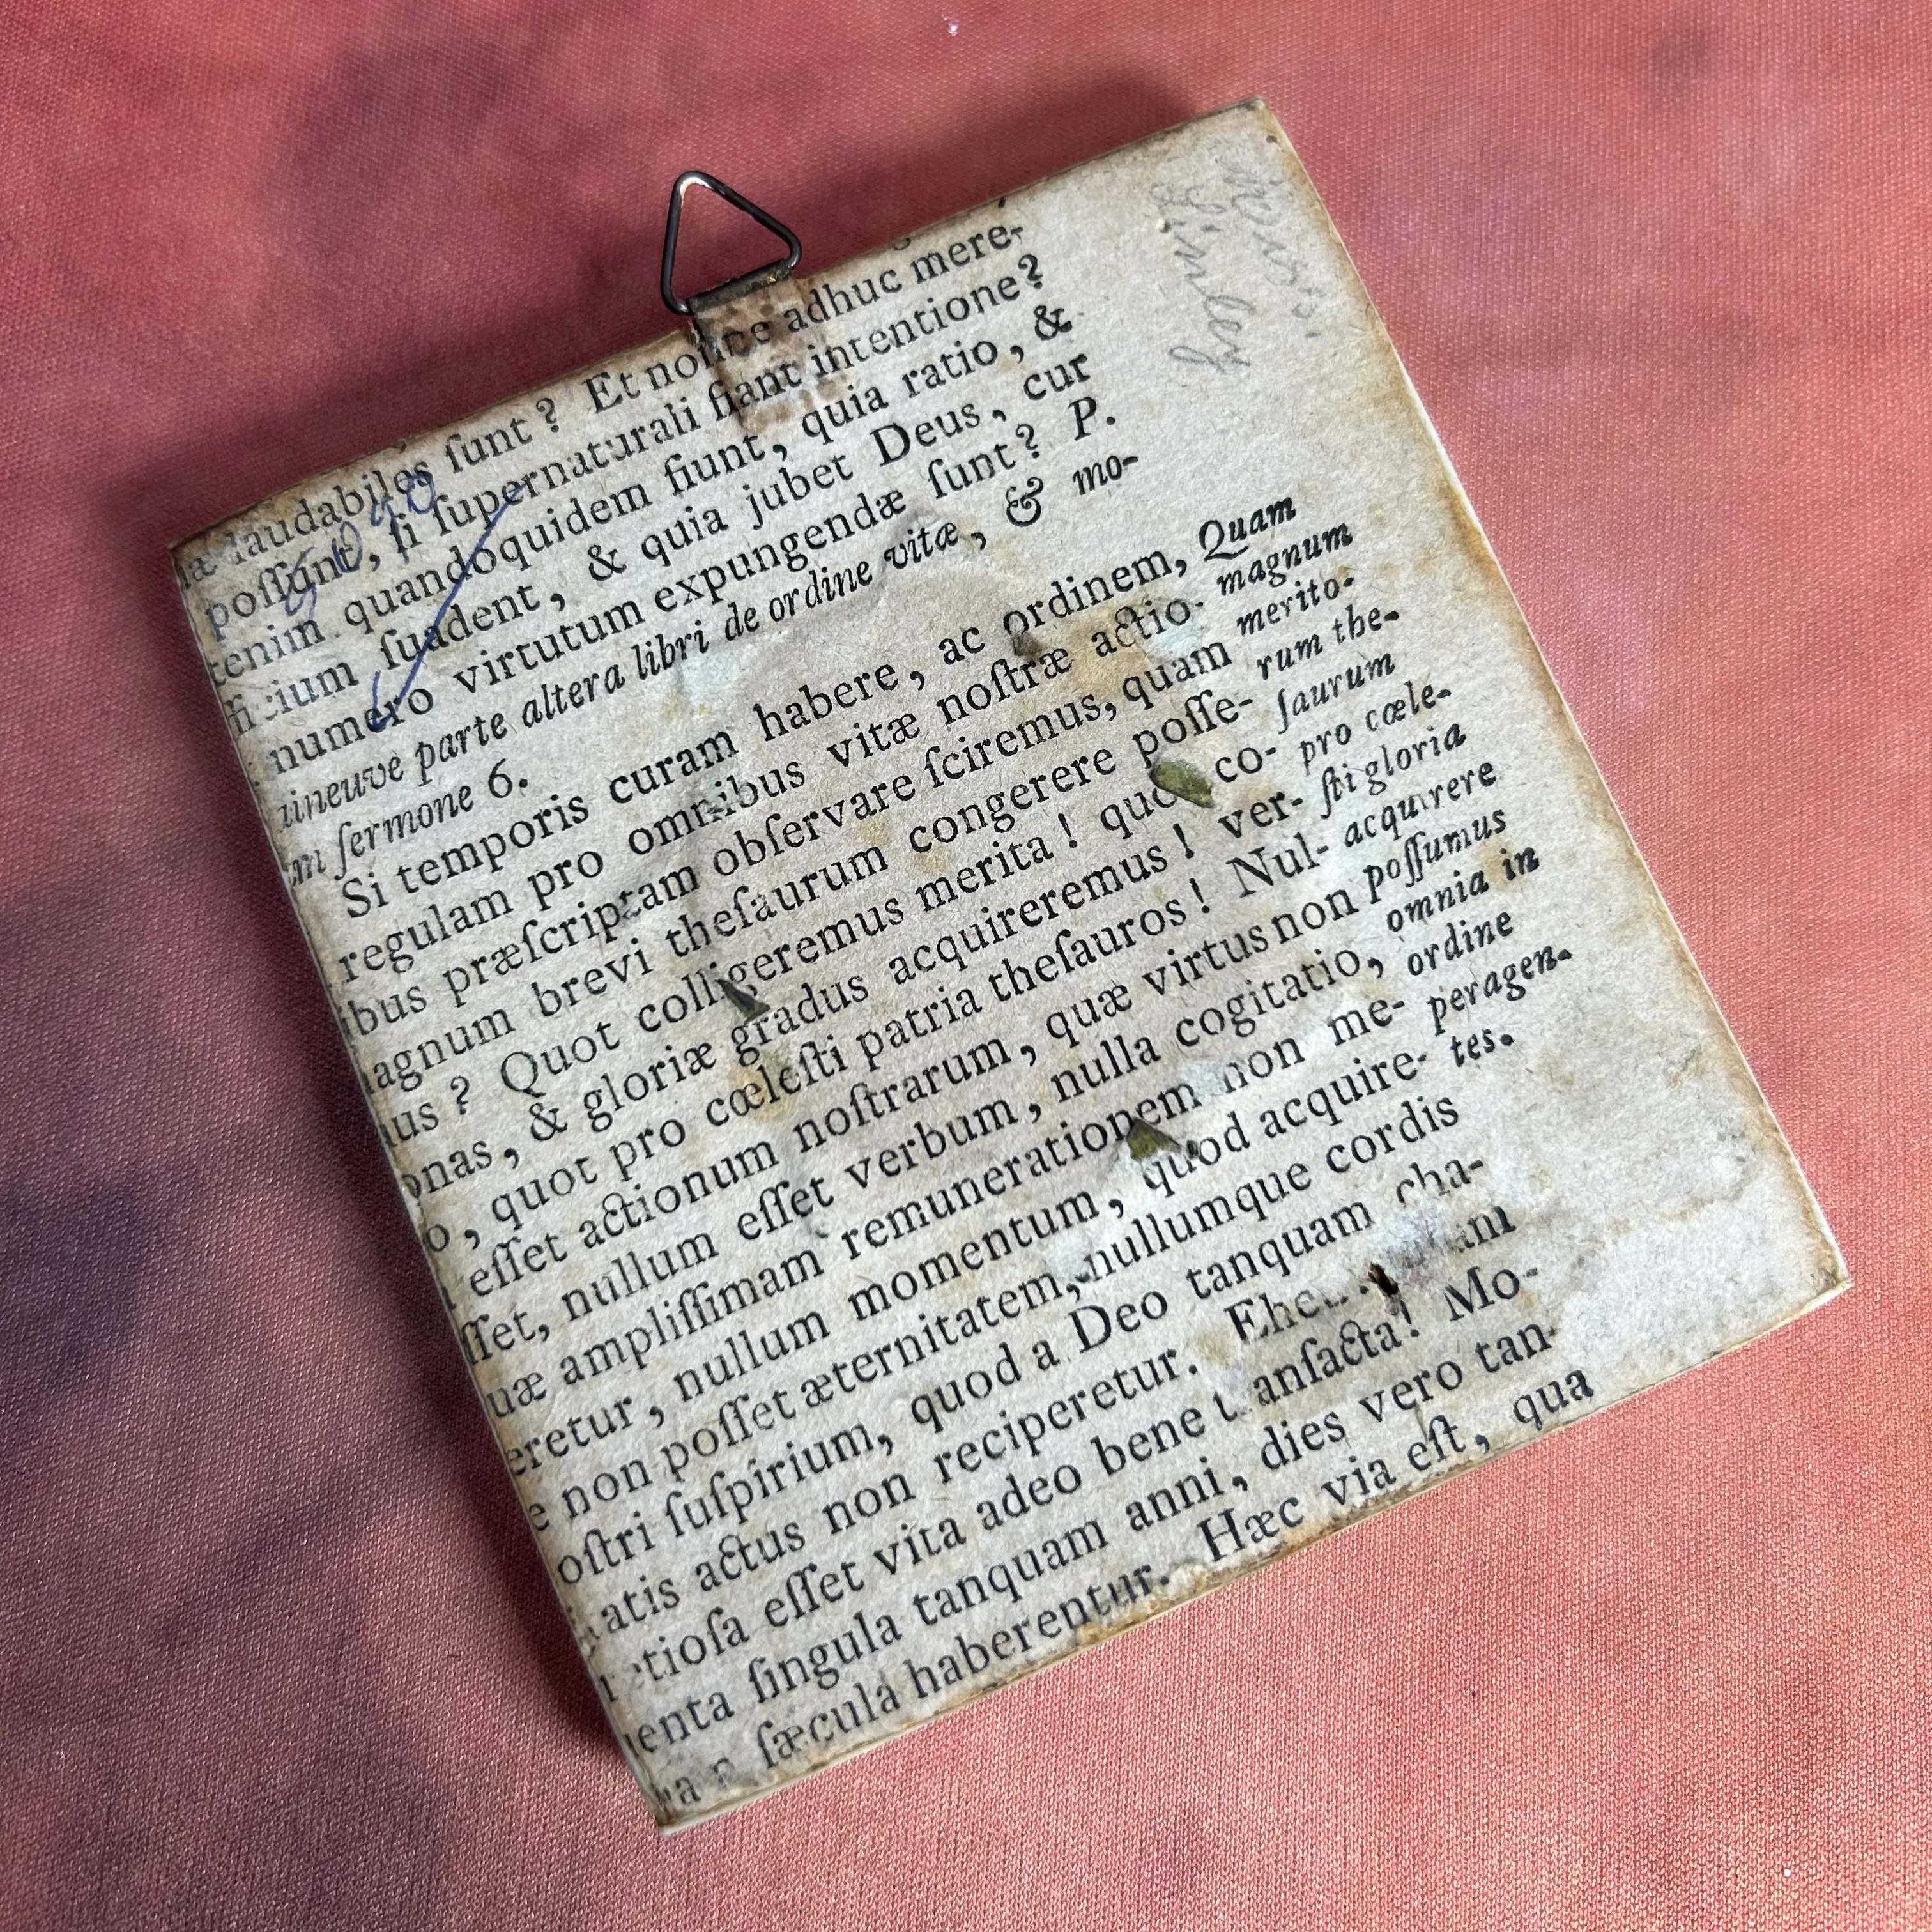 laudabiles ſunt? Et adhuc mere-
poſſunt, ſi ſupernaturali fiant intentione?
tenim quandoquidem fiunt, quia ratio, &
ſuadent, & quia jubet Deus, cur
numero virtutum expungendæ ſunt? P.
aineuve parte altera libri de ordine vitæ, & mo-
m ſermone 6.
Si temporis curam habere, ac ordinem,
regulam pro omnibus vitæ noſtræ actio-
ibus præſcriptam obſervare ſciremus, quam
agnum brevi theſaurum congerere poſſe-
us? Quot colligeremus merita! quot co-
onas, & gloriæ gradus acquireremus! ver-
o, quot pro cœleſti patria theſauros! Nul-
eſſet actionum noſtrarum, quæ virtus non
ſſet, nullum eſſet verbum, nulla cogitatio,
uæ ampliſſimam remunerationem non me-
eretur, nullum momentum, quod acquire-
e non poſſet æternitatem, nullumque cordis
oſtri ſuſpirium, quod a Deo tanquam cha-
atis actus non reciperetur.
etioſa eſſet vita adeo bene tranſacta! Mo-
enta ſingula tanquam anni, dies vero tan-
ſæcula haberentur. Hæc via eſt, qua
Quam
magnum
merito-
rum the-
ſaurum
pro cœle-
ſti gloria
acquirere
poſſumus
omnia in
ordine
peragen-
tes.